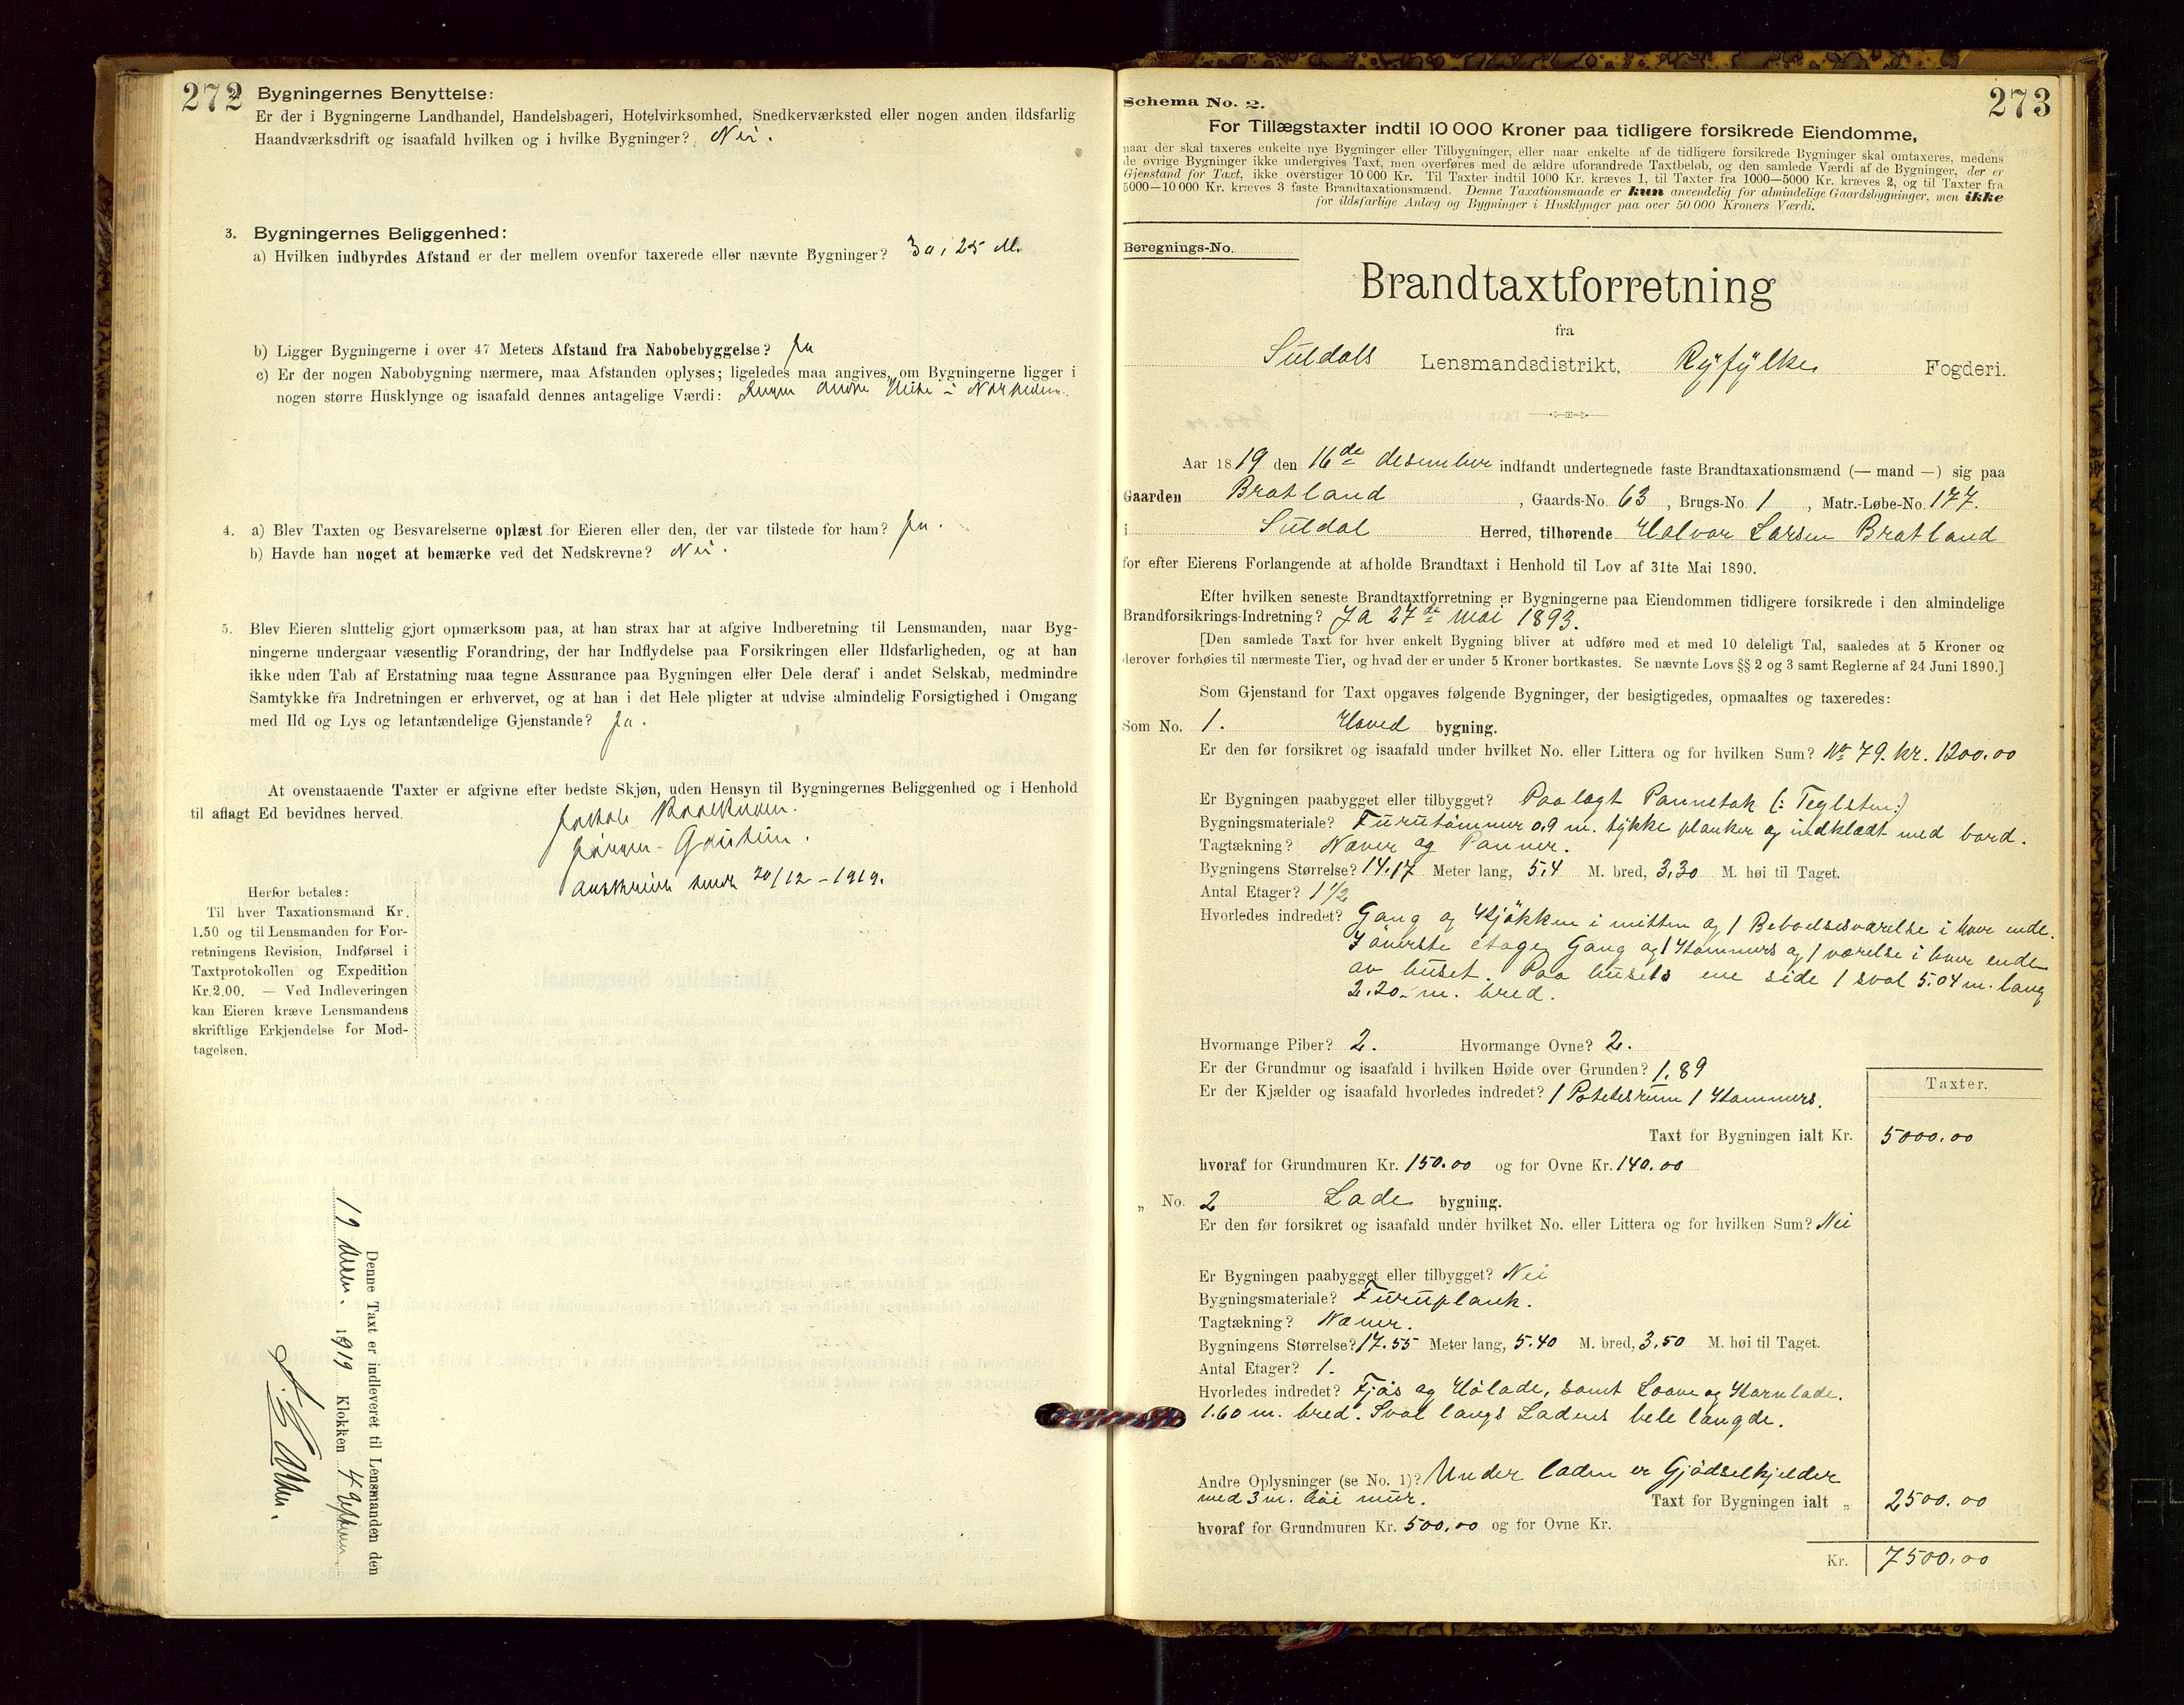 272
Bygningernes Benyttelse:
Er der i Bygningerne Landhandel, Handelsbageri, Hotelvirksomhed, Snedkerværksted eller nogen anden ildsfarlig
Haandværksdrift og isaafald hvilken og i hvilke Bygninger? Nei.
3. Bygningernes Beliggenhed:
a) Hvilken indbyrdes Afstand er der mellem ovenfor taxerede eller nævnte Bygninger? 30, 25 M.
b) Ligger Bygningerne i over 47 Meters Afstand fra Nabobebyggelse? Ja
c) Er der nogen Nabobygning nærmere, maa Afstanden oplyses; ligeledes maa angives, om Bygningerne ligger i
nogen større Husklynge og isaafald dennes antagelige Værdi: Ingen andre Huse i Nærheden.
4. a) Blev Taxten og Besvarelserne oplæst for Eieren eller den, der var tilstede for ham? Ja.
b) Havde han noget at bemærke ved det Nedskrevne? Nei.
5. Blev Eieren sluttelig gjort opmærksom paa, at han strax har at afgive Indberetning til Lensmanden, naar Byg-
ningerne undergaar væsentlig Forandring, der har Indflydelse paa Forsikringen eller Ildsfarligheden, og at han
ikke uden Tab af Erstatning maa tegne Assurance paa Bygningen eller Dele deraf i andet Selskab, medmindre
Samtykke fra Indretningen er erhvervet, og at han i det Hele pligter at udvise almindelig Forsigtighed i Omgang
med Ild og Lys og letantændelige Gjenstande? Ja.
At ovenstaaende Taxter er afgivne efter bedste Skjøn, uden Hensyn til Bygningernes Beliggenhed og i Henhold
til aflagt Ed bevidnes herved.
20/12 - 1919.
Herfor betales:
Til hver Taxationsmand Kr.
1.50 og til Lensmanden for For-
retningens Revision, Indførsel i
Taxtprotokollen og Expedition
Kr. 2.00. — Ved Indleveringen
kan Eieren kræve Lensmandens
skriftlige Erkjendelse for Mod-
tagelsen.
Denne Taxt er indleveret til Lensmanden den
19 1919 Klokken 4
273
Schema No. 2.
For Tillægstaxter indtil 10 000 Kroner paa tidligere forsikrede Eiendomme,
naar der skal taxeres enkelte nye Bygninger eller Tilbygninger, eller naar enkelte af de tidligere forsikrede Bygninger skal omtaxeres, medens
de øvrige Bygninger ikke undergives Taxt, men overføres med de ældre uforandrede Taxtbeløb, og den samlede Værdi af de Bygninger, der er
Gjenstand for Taxt, ikke overstiger 10 000 Kr. Til Taxter indtil 1000 Kr. kræves 1, til Taxter fra 1000—5000 Kr. kræves 2, og til Taxter fra
5000—10 000 Kr. kræves 3 faste Brandtaxationsmænd. Denne Taxationsmaade er kun anvendelig for almindelige Gaardsbygninger, men ikke
for ildsfarlige Anlæg og Bygninger i Husklynger paa over 50 000 Kroners Værdi.
Beregnings-No.
Brandtaxtforretning
fra
Suldals Lensmandsdistrikt, Ryfylke Fogderi.
Aar 1819 den 16de desember indfandt undertegnede faste Brandtaxationsmænd (— mand —) sig paa
Gaarden Bratland, Gaards-No. 63, Brugs-No 1, Matr.-Løbe-No. 177.
i Suldal Herred, tilhørende Halvor Larsen Bratland
for efter Eierens Forlangende at afholde Brandtaxt i Henhold til Lov af 31te Mai 1890.
Efter hvilken seneste Brandtaxtforretning er Bygningerne paa Eiendommen tidligere forsikrede i den almindelige
Brandforsikrings-Indretning? Ja 27de Mai 1893.
[Den samlede Taxt for hver enkelt Bygning bliver at udføre med et med 10 deleligt Tal, saaledes at 5 Kroner og
derover forhøies til nærmeste Tier, og hvad der er under 5 Kroner bortkastes. Se nævnte Lovs §§ 2 og 3 samt Reglerne af 24 Juni 1890.]
Som Gjenstand for Taxt opgaves følgende Bygninger, der besigtigedes, opmaaltes og taxeredes:
Som No. 1. Hoved bygning.
Er den før forsikret og isaafald under hvilket No. eller Littera og for hvilken Sum? No 79. kr. 1200.00
Er Bygningen paabygget eller tilbygget? Paalagt Pannetak (: Teglsten:)
Bygningsmateriale? Furutømmer 0,9 m. tykke planker og indklædt med bord.
Tagtækning? Næver og Panner.
Bygningens Størrelse? 14.17 Meter lang, 5,4 M. bred, 3,30 M. høi til Taget.
Antal Etager? 1 1/2
Hvorledes indredet? Gang og Kjøkken i mitten og 1 Beboelsesværelse i hver ende.
I øverste etage Gang og 1 Kammers og 1 værelse i hver ende
av huset. Paa husets ene side 1 sval 5.04 m. lang
2.20 m. bred.
Hvormange Piber? 2. Hvormange Ovne? 2.
Er der Grundmur og isaafald i hvilken Høide over Grunden? 1.89
Er der Kjælder og isaafald hvorledes indredet? 1 Potetesrum 1 Kammers.
Taxter.
Taxt for Bygningen ialt Kr. 5000.00
hvoraf for Grundmuren Kr. 150.00 og for Ovne Kr. 140.00
„ No. 2 Lade bygning.
Er den før forsikret og isaafald under hvilket No. eller Littera og for hvilken Sum? Nei
Er Bygningen paabygget eller tilbygget? Nei
Bygningsmateriale? Furuplank.
Tagtækning? Næver.
Bygningens Størrelse? 17.55 Meter lang, 5.40 M. bred, 3,50 M. høi til Taget.
Antal Etager? 1.
Hvorledes indredet? Fjøs og Hølade, samt Loave og Kornlade.
1.60 m. bred. Sval langs Ladens hele længde.
Andre Oplysninger (se No. 1)? Under laden er Gjødselkjelder
med 3 m. høi mur. Taxt for Bygningen ialt „ 2500.00
hvoraf for Grundmuren Kr. 500,00 og for Ovne Kr.
Kr. 7500,00